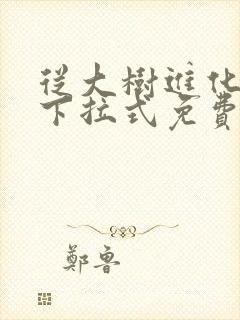 從大樹進化
下拉式免費
鄭魯